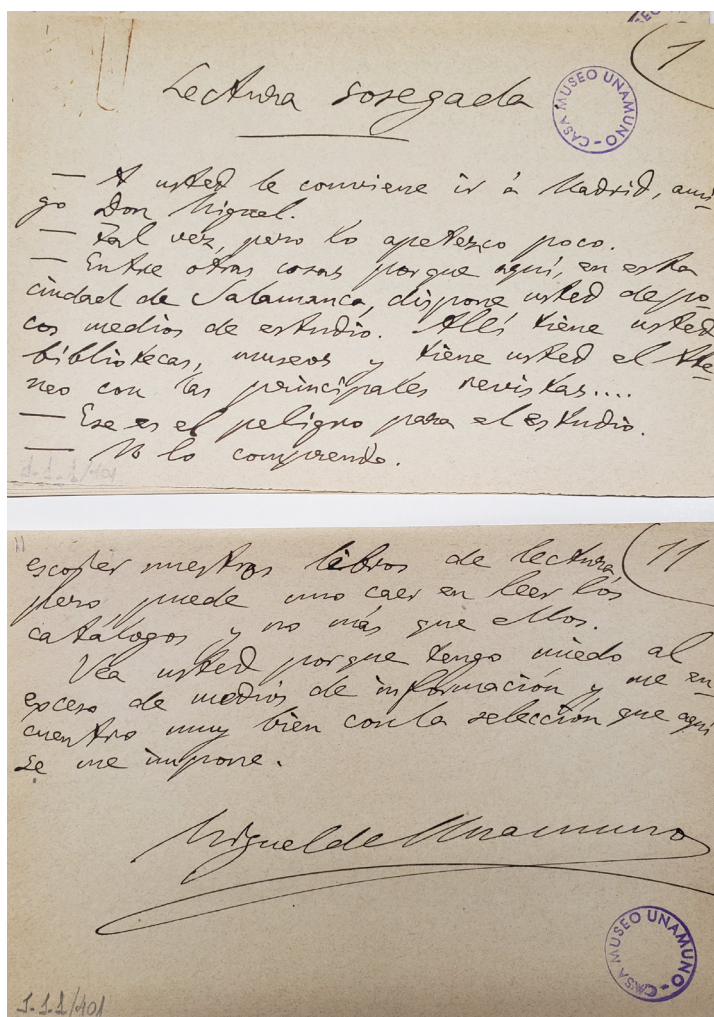 1
Lectura sosegada
CASA MUSEO UNAMUNO
— A usted le conviene ir á Madrid, ami-
go Don Miguel.
— Tal vez, pero lo apetezco poco.
— Entre otras cosas porque aquí, en esta
ciudad de Salamanca, dispone usted de po-
cos medios de estudio. Allí tiene usted
bibliotecas, museos y tiene usted el Ate-
neo con las principales revistas....
— Ese es el peligro para el estudio.
— No lo comprendo.
1-1-1/401
11
escojer nuestros libros de lectura
pero puede uno caer en leer los
catálogos y no más que ellos.
Vea usted porque tengo miedo al
exceso de medios de información y me en-
cuentro muy bien con la selección que aquí
se me impone.
Miguel de Unamuno
CASA MUSEO UNAMUNO
1-1-1/401